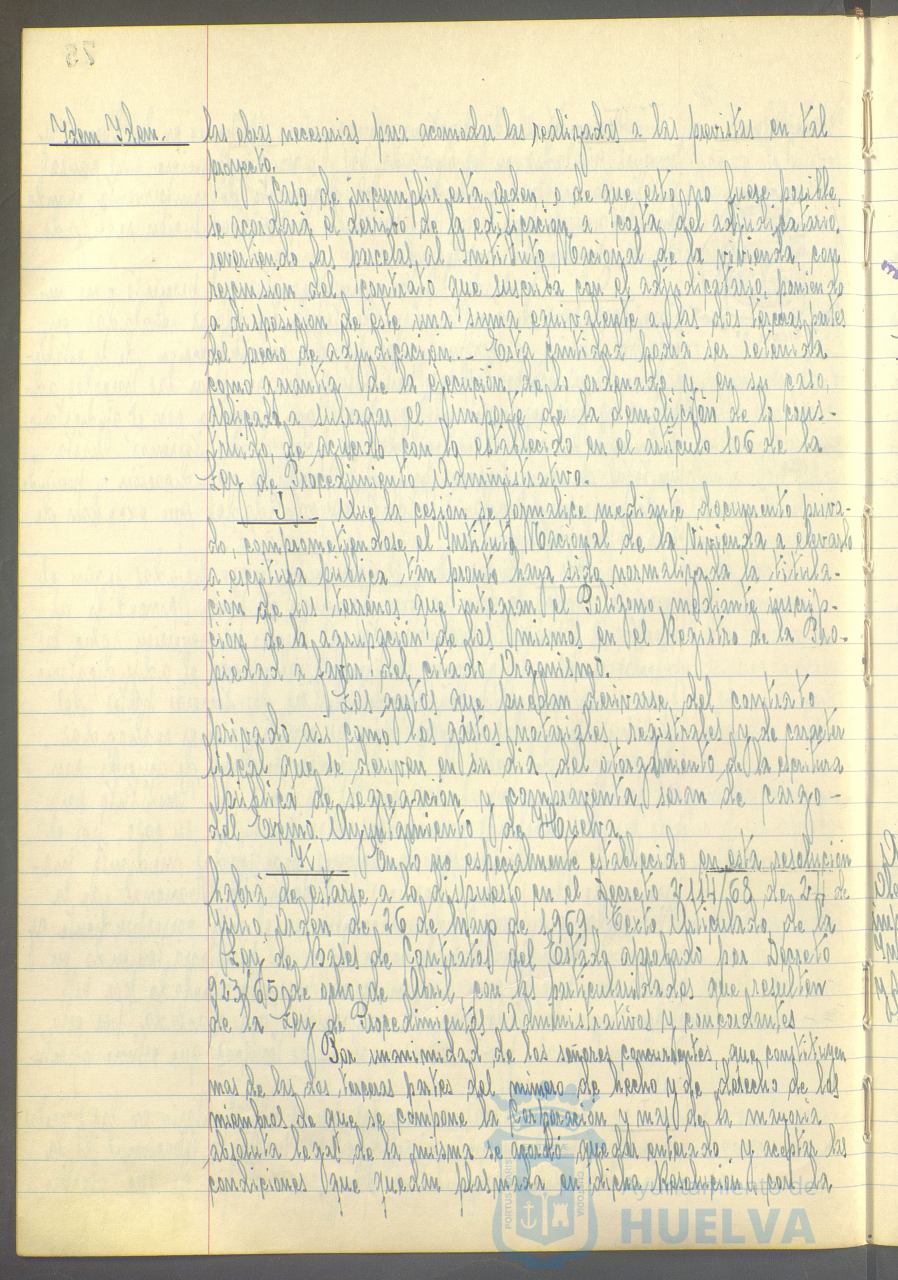 Idem Idem.-
las obras necesarias para acomodar las realizadas a las previstas en tal
proyecto.
Caso de incumplir esta orden, o de que esto no fuese posible,
se acordará el derribo de la edificación a costa del adjudicatario,
revertiendo las parcelas al Instituto Nacional de la vivienda, con
rescisión del contrato que suscriba con el adjudicatario, poniendo
a disposición de éste una suma equivalente a las dos terceras partes
del precio de adjudicación.- Esta cantidad podrá ser retenida
como garantía de la ejecución de lo ordenado, y, en su caso,
aplicada a sufragar el importe de la demolición de lo cons-
truido, de acuerdo con lo establecido en el artículo 106 de la
Ley de Procedimiento Administrativo.
J. Que la cesión se formalice mediante documento priva-
do, comprometiendose el Instituto Nacional de la Vivienda a elevarlo
a escritura pública, tan pronto haya sido normalizada la titula-
ción de los terrenos que integran el Polígono, mediante inscrip-
ción de la agrupación de los mismos en el Registro de la Pro-
piedad a favor del citado Organismo.
Los gastos que puedan derivarse del contrato
privado así como los gastos notariales, registrales y de carácter
fiscal que se deriven en su día del otorgamiento de la escritura
pública de segregación y compraventa, serán de cargo -
del Excmo. Ayuntamiento de Huelva.
K. En lo no especialmente establecido en esta resolución
habrá de estarse a lo dispuesto en el Decreto 2114/68 de 24 de
Julio, Orden de 26 de Mayo de 1.969, Texto Articulado de la
Ley de Bases de Contratos del Estado aprobado por Decreto
923/65 de ocho de Abril, con las particularidades que resulten
de la Ley de Procedimientos Administrativos y concordantes
Por unanimidad de los señores concurrentes, que constituyen
mas de las dos terceras partes del número de hecho y de derecho de los
miembros de que se compone la Corporación y mas de la mayoría
absoluta legal de la misma se acordó quedar enterado y aceptar las
condiciones que quedan plasmada en dicha Resolución con la
Ayuntamiento de
HUELVA